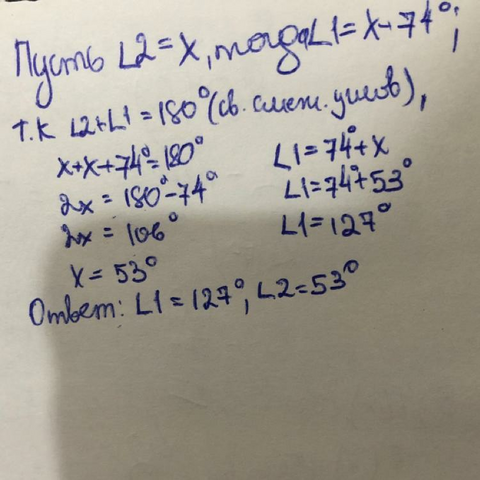 Пусть L2 = x, тогда L1 = x + 74°;
т.к L2+L1 = 180° (св. смеж. углов),
x+x+74°=180°
2x = 180°-74°
2x = 106°
x = 53°
L1 = 74°+x
L1 = 74°+53°
L1 = 127°
Ответ: L1 = 127°, L2 = 53°